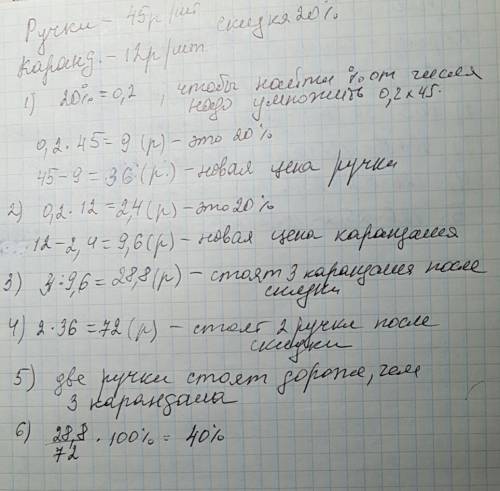 Ручки – 45р/шт скидка 20%
Каранд. – 12р/шт
1) 20% = 0,2, чтобы найти % от числа
надо умножить 0,2 × 45.
0,2 · 45 = 9 (р) – это 20%
45 – 9 = 36 (р.) – новая цена ручки
2) 0,2 · 12 = 2,4 (р) – это 20%
12 – 2,4 = 9,6 (р) – новая цена карандаша
3) 3 · 9,6 = 28,8 (р) – стоят 3 карандаша после
скидки
4) 2 · 36 = 72 (р) – стоят 2 ручки после
скидки
5) две ручки стоят дороже, чем
3 карандаша
6) 28,8/72 · 100% = 40%